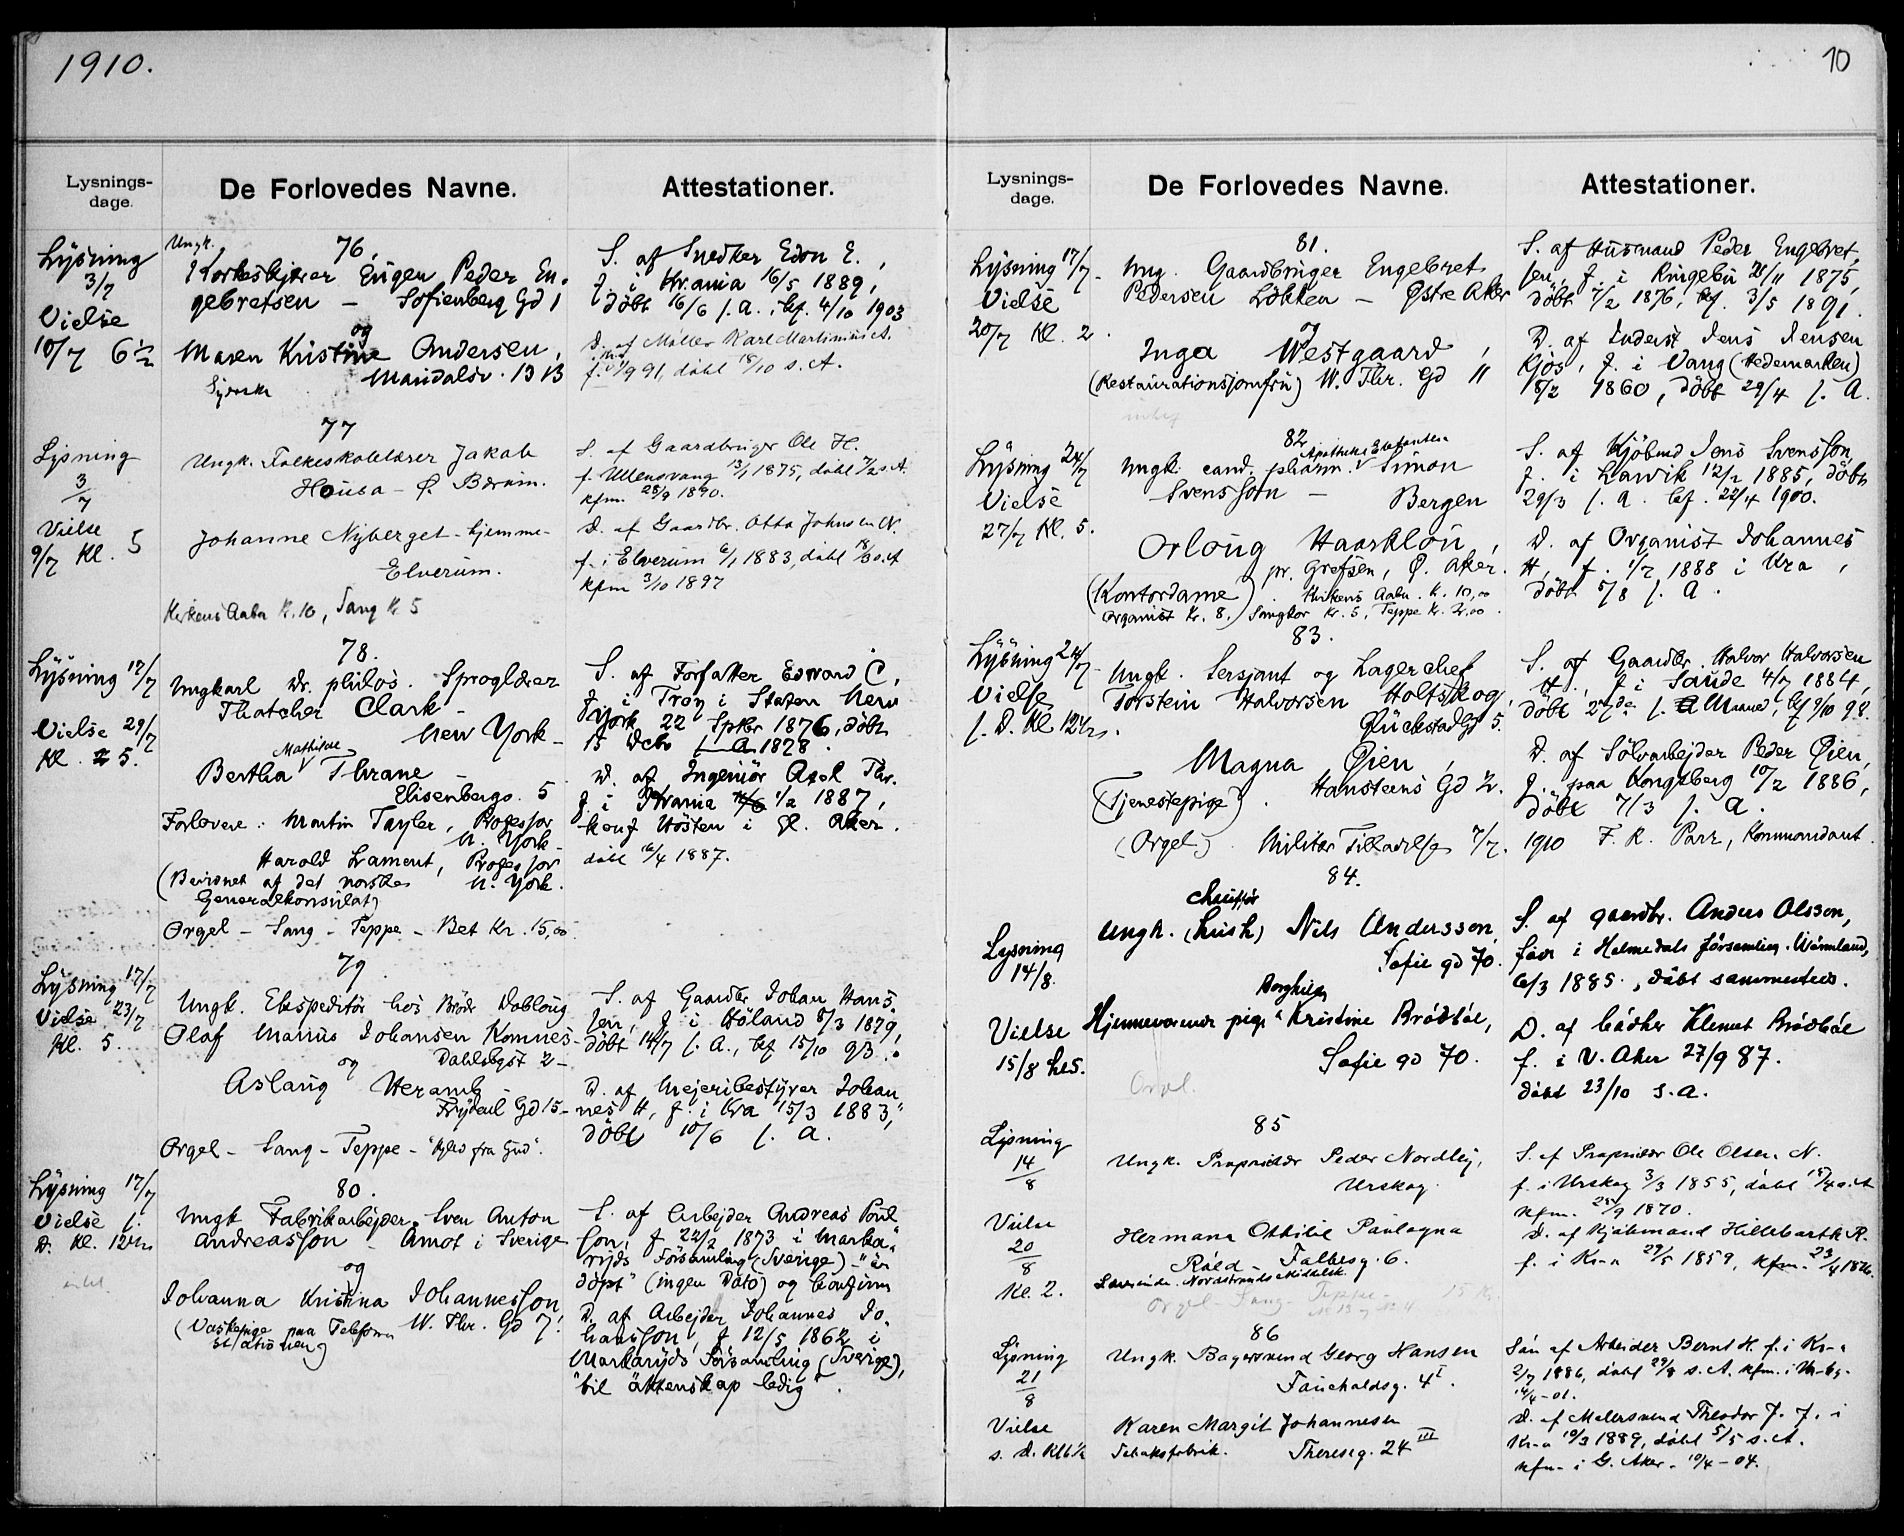 1910.
10
Lysnings-
dage.
De Forlovedes Navne.
Attestationer.
Lysning
3/7
Vielse
10/7 6½
Ungk.
76,
Eugen Peder En-
gebretsen – Sofienberg Gd 1
og
Maren Kristine Andersen,
Maridalsv. 13 B
Syerske
S. af Snedker Edon E.,
f. i Krania 16/5 1889,
döbt 16/6 s. A., kf. 4/10 1903
D. af Möller Karl Martinius A.
f. 9 91, döbt 18/10 s. A.
77
Lysning
3/7
Vielse
9/7 Kl. 5
Ungk. Folkeskolelærer Jakob
Housa – Ø. Bærum.
Johanne Nyberget – hjemme –
Elverum.
Kirkens Aabn K. 10, Sang K 5
S. af Gaardbruger Ole H.
f. Ullensvang 13/1 1875, döbt 7/2 s. A.
kfm. 28/9 1890.
D. af Gaardbr. Otto Johnsen N.
f. i Elverum 6/1 1883, döbt 18/3 s. A
kfm 3/10 1897
78.
Lysning 17/7
Vielse 29/7
Kl. 5.
Ungkarl Dr. philos. Sproglærer
Thatcher Clark –
New York –
Mathilde
Bertha Thrane –
Elisenbergv. 5
Forlovere: Martin Tayler, Professor
N. York –
Harold Lament, Professor
(Bevidnet af det norske N. York.
Generalkonsulat)
Orgel – Sang – Teppe – Bet Kr. 15,00
S. af Forfatter Edward C,
f. i Troy i Staten New
York 22 Sptbr 1876, döbt
15 Decbr s. A 1878.
D. af Ingeniör Axel Thr.
f. i Krania 1/2 1887,
konf Hösten i Ø. Aker.
döbt 16/4 1887.
79
Lysning 17/7
Vielse 23/7
Kl. 5.
Ungk. Ekspeditör hos Brödr Dobloug
Olaf Marius Johansen Komnes –
og Dahlsbgst 2 –
Aslaug Heramb –
Frydenl Gd 15 –
Orgel – Sang – Teppe – "Kjærl fra Gud".
S. af Gaardbr Johan Hans-
sen, f. i Höland 8/3 1879,
döbt 14/7 s. A., kf 15/10 93.
D. af Mejeribestyrer Johan-
nes H, f. i Kra 15/3 1883,
döbt 10/6 s. A.
80.
Lysning 17/7
Vielse s.
D. Kl. 12½
Ungk Fabrikarbejder Sven Anton
Andreasson – Åmot i Sverige
og
Johanna Kristina Johannesson,
(Vaskepige paa Telefon W. Thr. Gd 7.
stationen)
S. af Arbejder Andreas Poul
son, f 22/2 1873 i Marka-
ryds Församling (Sverige) – "är
döpt" (ingen Dato) og konfirm
D. af Arbejder Johannes Jo-
hansson, f 12/5 1862 i
Markaryds Församling (Sverige),
"til äktenskap ledig".
Lysnings-
dage.
De Forlovedes Navne.
Attestationer.
81.
Lysning 17/7 –
Vielse
20/7 Kl. 2.
Ung. Gaardbruger Engebret
Pedersen Lökken – Østre Aker
og
Inga Westgaard,
(Restaurationsjomfru) W. Thr. Gd 11
S. af Husmand Peder Engebret-
sen, f. i Ringebu 28/11 1875,
döbt 7/2 1876, kf. 3/5 1891.
D. af Inderst Jens Jensen
Kjos, f. i Vang (Hedemarken)
8/2 1860, döbt 29/4 s. A.
82
Lysning 24/7
Vielse
27/7 Kl. 5.
Ungk. cand. pharm. Simon
Svensson – Bergen
Orloug Haarklou,
pr. Grefsen, Ø. Aker.
(Kontordame) Kirkens Aabn. K. 10,00
Organist Kr. 8. Sangkor Kr. 5, Teppe K. 2,00.
S. af Kjöbmd Jens Svensson,
f. i Larvik 12/2 1885, döbt
29/3 s. A. kf. 22/4 1900.
D. af Organist Johannes
H., f. 1/7 1888 i Kra,
döbt 5/8 s. A.
83.
Lysning 24/7 –
Vielse
s. D. Kl 12½.
Ungk. Sersjant og Lagerchef
Torstein Halvorsen Holtskog,
Glückstad Gd 5.
Magna Øien,
(Tjenestepige). Hansteens Gd 2.
(Orgel) Militær Tilladelse 7/7. 1910 F. K. Parr, Kommandant.
S. af Gaardbr. Halvor Halvorsen
H., f i Saude 4/7 1884,
döbt 27de s. Maaned, kf 9/10 98.
D. af Sölvarbejder Peder Øien,
f. paa Kongsberg 10/2 1886,
döbt 7/3 s. A.
84.
Lysning
14/8.
Vielse
15/8 kl 5.
Chauffør
Ungk. (Kusk) Nils Andersson,
Sofie gd 70.
Borghild
Hjemmeværende pige Kristine Brödbøl,
Sofie gd 70.
Orgel.
S. af gaardbr. Anders Olsson,
född i Holmedals församling. Wärmland,
6/3 1885., döbt sammesteds.
D. af bødker Klemet Brödbøl
f. i V. Aker 27/9 87.
döbt 23/10 s. A.
85
Lysning
14/8
Vielse
20/8
Kl. 2.
Ungk. Proprietær Peder Nordby,
Urskog.
Hermana Othilie Paulagna
Röed – Falbesg. 6.
Lærerinde. Nordstrands Middelsk.
Orgel – Sang – Teppe – 15 Kr.
S. af Proprietær Ole Olsen N.
f. i Urskog 3/3 1855, döbt 18/4 s. A
kfm. 25/9 1870.
D. af Kjöbmand Hillebarth R.
f. i Kr-a 29/5 1859, kfm. 23/4 1876.
86
Lysning
21/8
Vielse
Ungk. Bagersvend Georg Hansen
Fauchaldsg. 4 I.
Karen Margit Johannesen
Tobaksfabrik. Theresesg. 24 III
Sön af Arbeider Bernt H. f. i Kr-a
2/7 1886, döbt 29/8 s. A. kfm. i
14/4 – 01.
D. af Malersvend Theodor J. f. i
Kr-a 10/3 1889, döbt 5/5 s. A.
kfm – i G. Aker. 10/4 – 04.